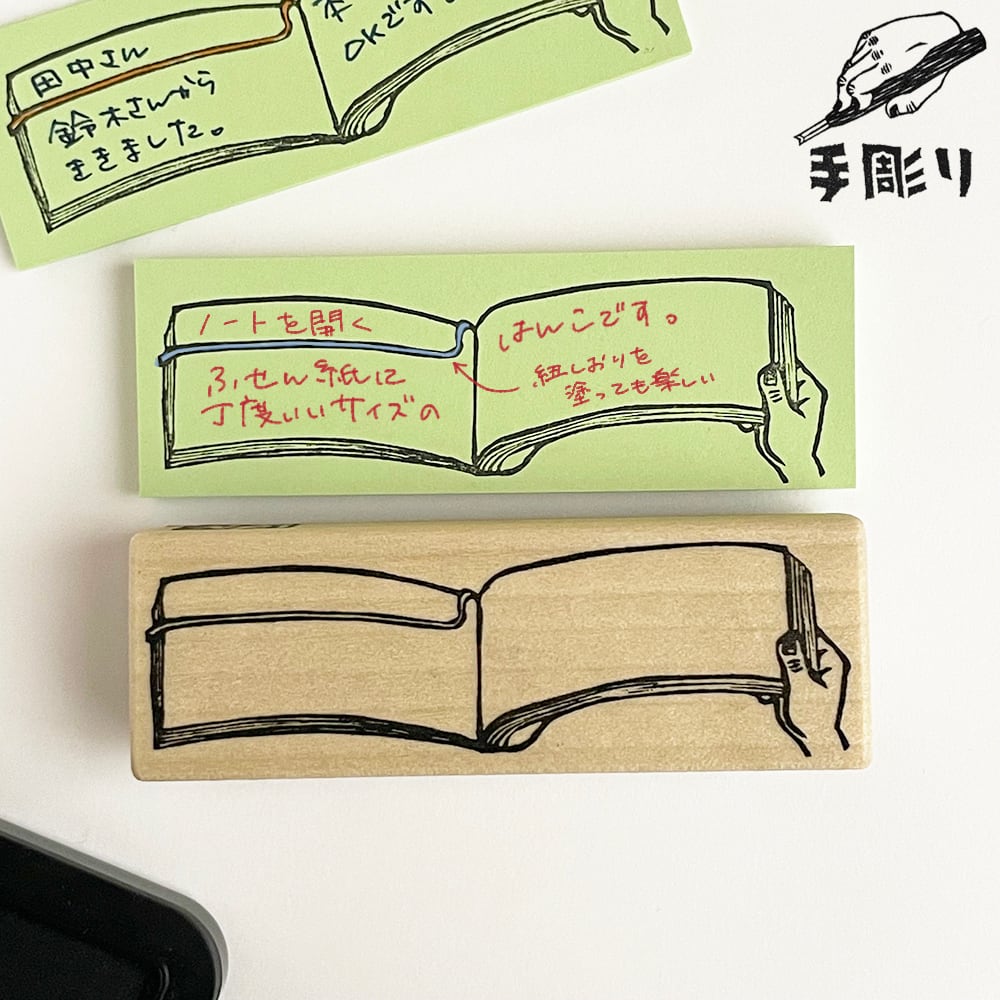 田中さん
鈴木さんから
ききました。
本
OKです
手彫り
ノートを開く
ふせん紙に
丁度いいサイズの
はんこです。
紐しおりを
塗っても楽しい